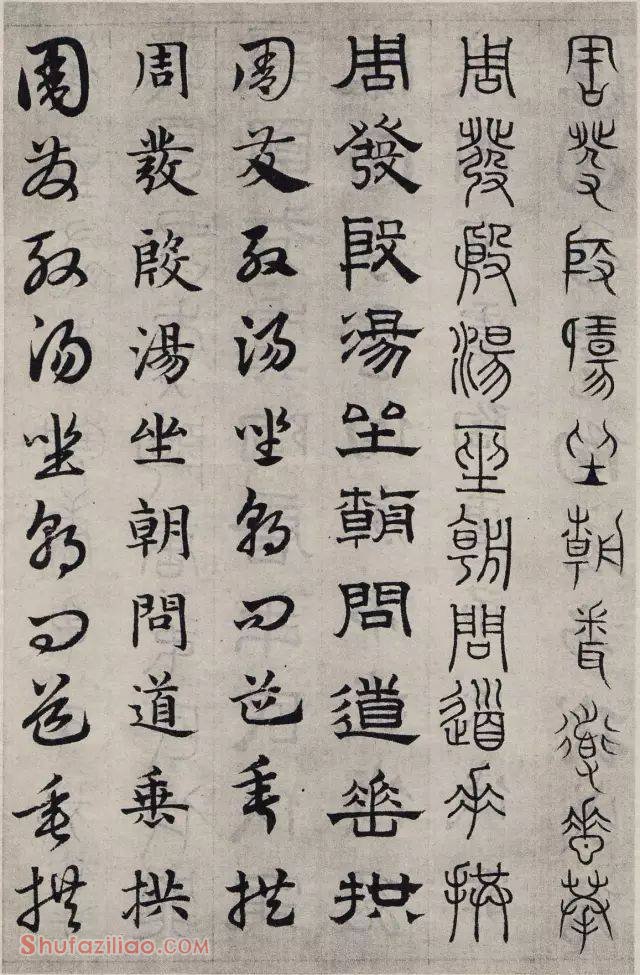 周發殷湯坐朝問道垂拱
周發殷湯坐朝問道垂拱
周發殷湯坐朝問道垂拱
周發殷湯坐朝問道垂拱
周發殷湯坐朝問道垂拱
周發殷湯坐朝問道垂拱
Shufaziliao.COM